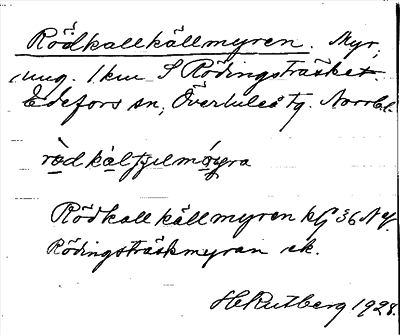 Rödkallkällmyren. Myr,
ung. 1 km S Rödingsträsket.
Edefors sn, Överluleå tg. Norrb.l.
Rödkallkällmyren kG 36 NV
Rödingsträskmyran ek.
H Rutberg 1928.